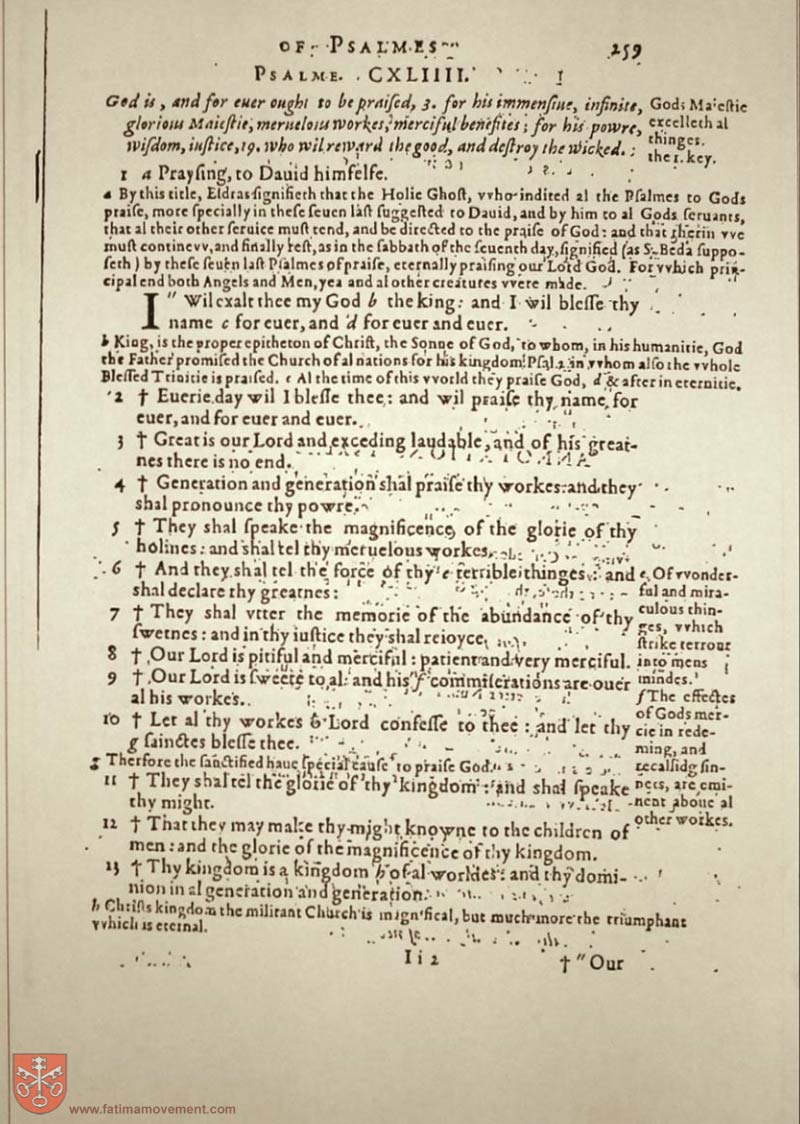 OF PSALMES
259
PSALME. CXLIIII.
God is, and for euer ought to be praiſed, 3. for his immenſiue, infinite,
glorious Maieſtie, meruelous workes, merciful benefites; for his powre,
wiſdom, iuſtice, 19. who wil reward the good, and deſtroy the wicked. :
Gods Maieſtie
excelleth al
thinges.
the 1. key.
1 a Prayſing, to Dauid himſelfe.
a By this title, Eſdras ſignifieth that the Holie Ghoſt, vvho indited al the Pſalmes to Gods
praiſe, more ſpecially in theſe ſeuen laſt ſuggeſted to Dauid, and by him to al Gods ſeruants,
that al their other ſeruice muſt tend, and be directed to the praiſe of God: and that therin vve
muſt continevv, and finally reſt, as in the ſabbath of the ſeuenth day, ſignified (as S. Beda ſuppo-
ſeth) by theſe ſeuen laſt Pſalmes of praiſe, eternally praiſing our Lord God. For vvhich prin-
cipal end both Angels and Men, yea and al other creatures vvere made.
I " Wil exalt thee my God b the king: and I wil bleſſe thy
name c for euer, and d for euer and euer.
b King, is the proper epitheton of Chriſt, the Sonne of God, to whom, in his humanitie, God
the Father promiſed the Church of al nations for his kingdom. Pſal. 2. in vvhom alſo the vvhole
Bleſſed Trinitie is praiſed. c Al the time of this vvorld they praiſe God, d & after in eternitie.
2 † Euerie day wil I bleſſe thee: and wil praiſe thy name for
euer, and for euer and euer.
3 † Great is our Lord and exceding laudable, and of his great-
nes there is no end.
4 † Generation and generation ſhal praiſe thy workes: and they
ſhal pronounce thy powre.
5 † They ſhal ſpeake the magnificence, of the glorie of thy
holines: and ſhal tel thy meruelous workes.
6 † And they ſhal tel the force of thy e terrible thinges: and
ſhal declare thy greatnes:
7 † They ſhal vtter the memorie of the abundance of thy
ſwetnes: and in thy iuſtice they ſhal reioyce.
8 † Our Lord is pitiful and merciful: patient and very merciful.
9 † Our Lord is ſweete to al: and his f commiſerations are ouer
al his workes.
10 † Let al thy workes ô Lord confeſſe to thee: and let thy
g ſainctes bleſſe thee.
e Of vvonder-
ful and mira-
culous thin-
ges, vvhich
ſtrike terrour
into mens
mindes.
f The effectes
of Gods mer-
cie in rede-
ming, and
recalſidg ſin-
ners, are emi-
nent aboue al
other workes.
g Therfore the ſanctified haue ſpecial cauſe to praiſe God.
11 † They ſhal tel the glorie of thy kingdom: and ſhal ſpeake
thy might.
12 † That they may make thy might knowne to the children of
men: and the glorie of the magnificence of thy kingdom.
13 † Thy kingdom is a kingdom h of al worldes: and thy domi-
nion in al generation and generation.
h Chriſts kingdom the militant Church is magnifical, but much more the triumphant
vvhich is eternal.
I i 2
† " Our
www.fatimamovement.com